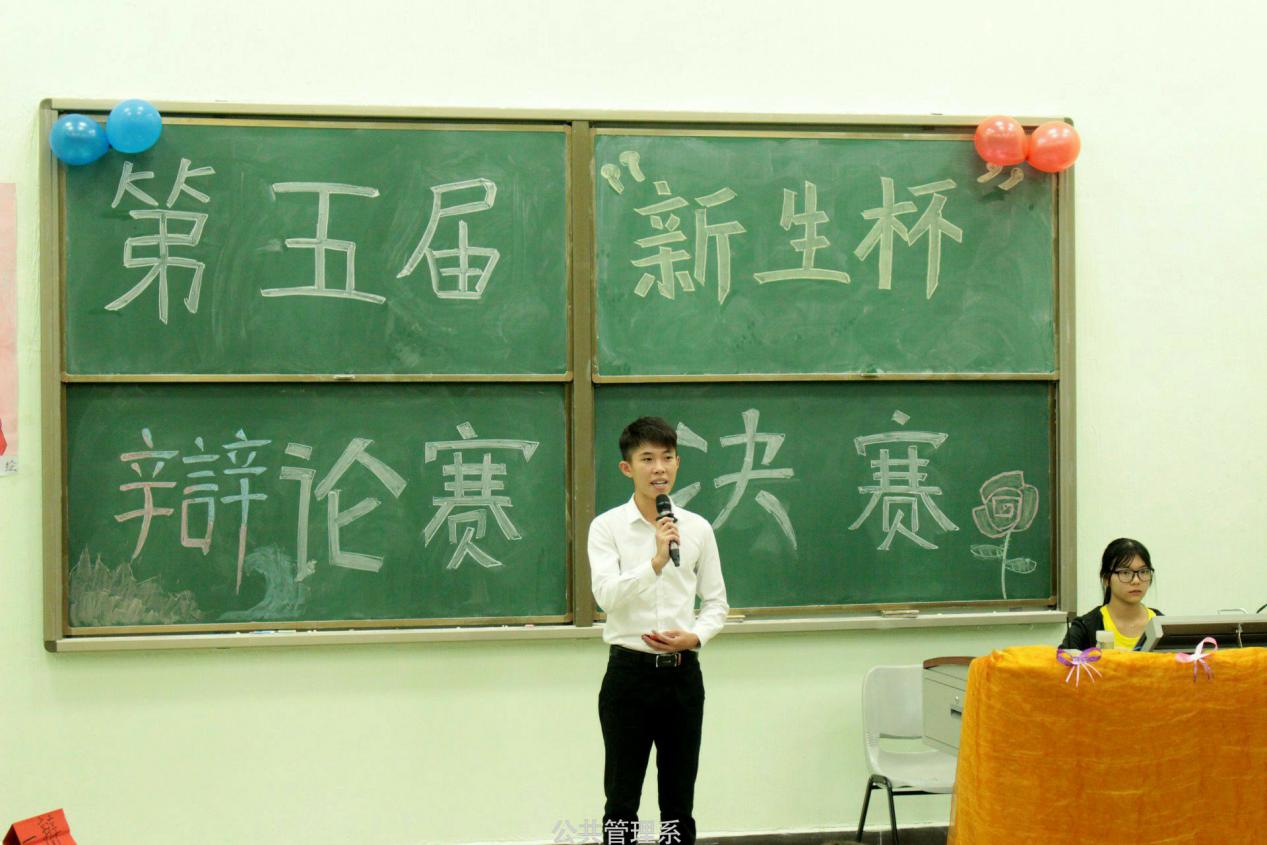 第五届
“新生杯”
辩论赛
决赛
公共管理系